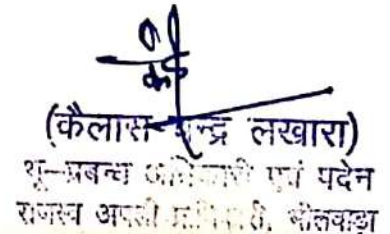 (कैलास चन्द्र लखारा)
भू-प्रबन्ध अधिकारी एवं पदेन
राजस्व अपील प्राधिकारी, भीलवाड़ा